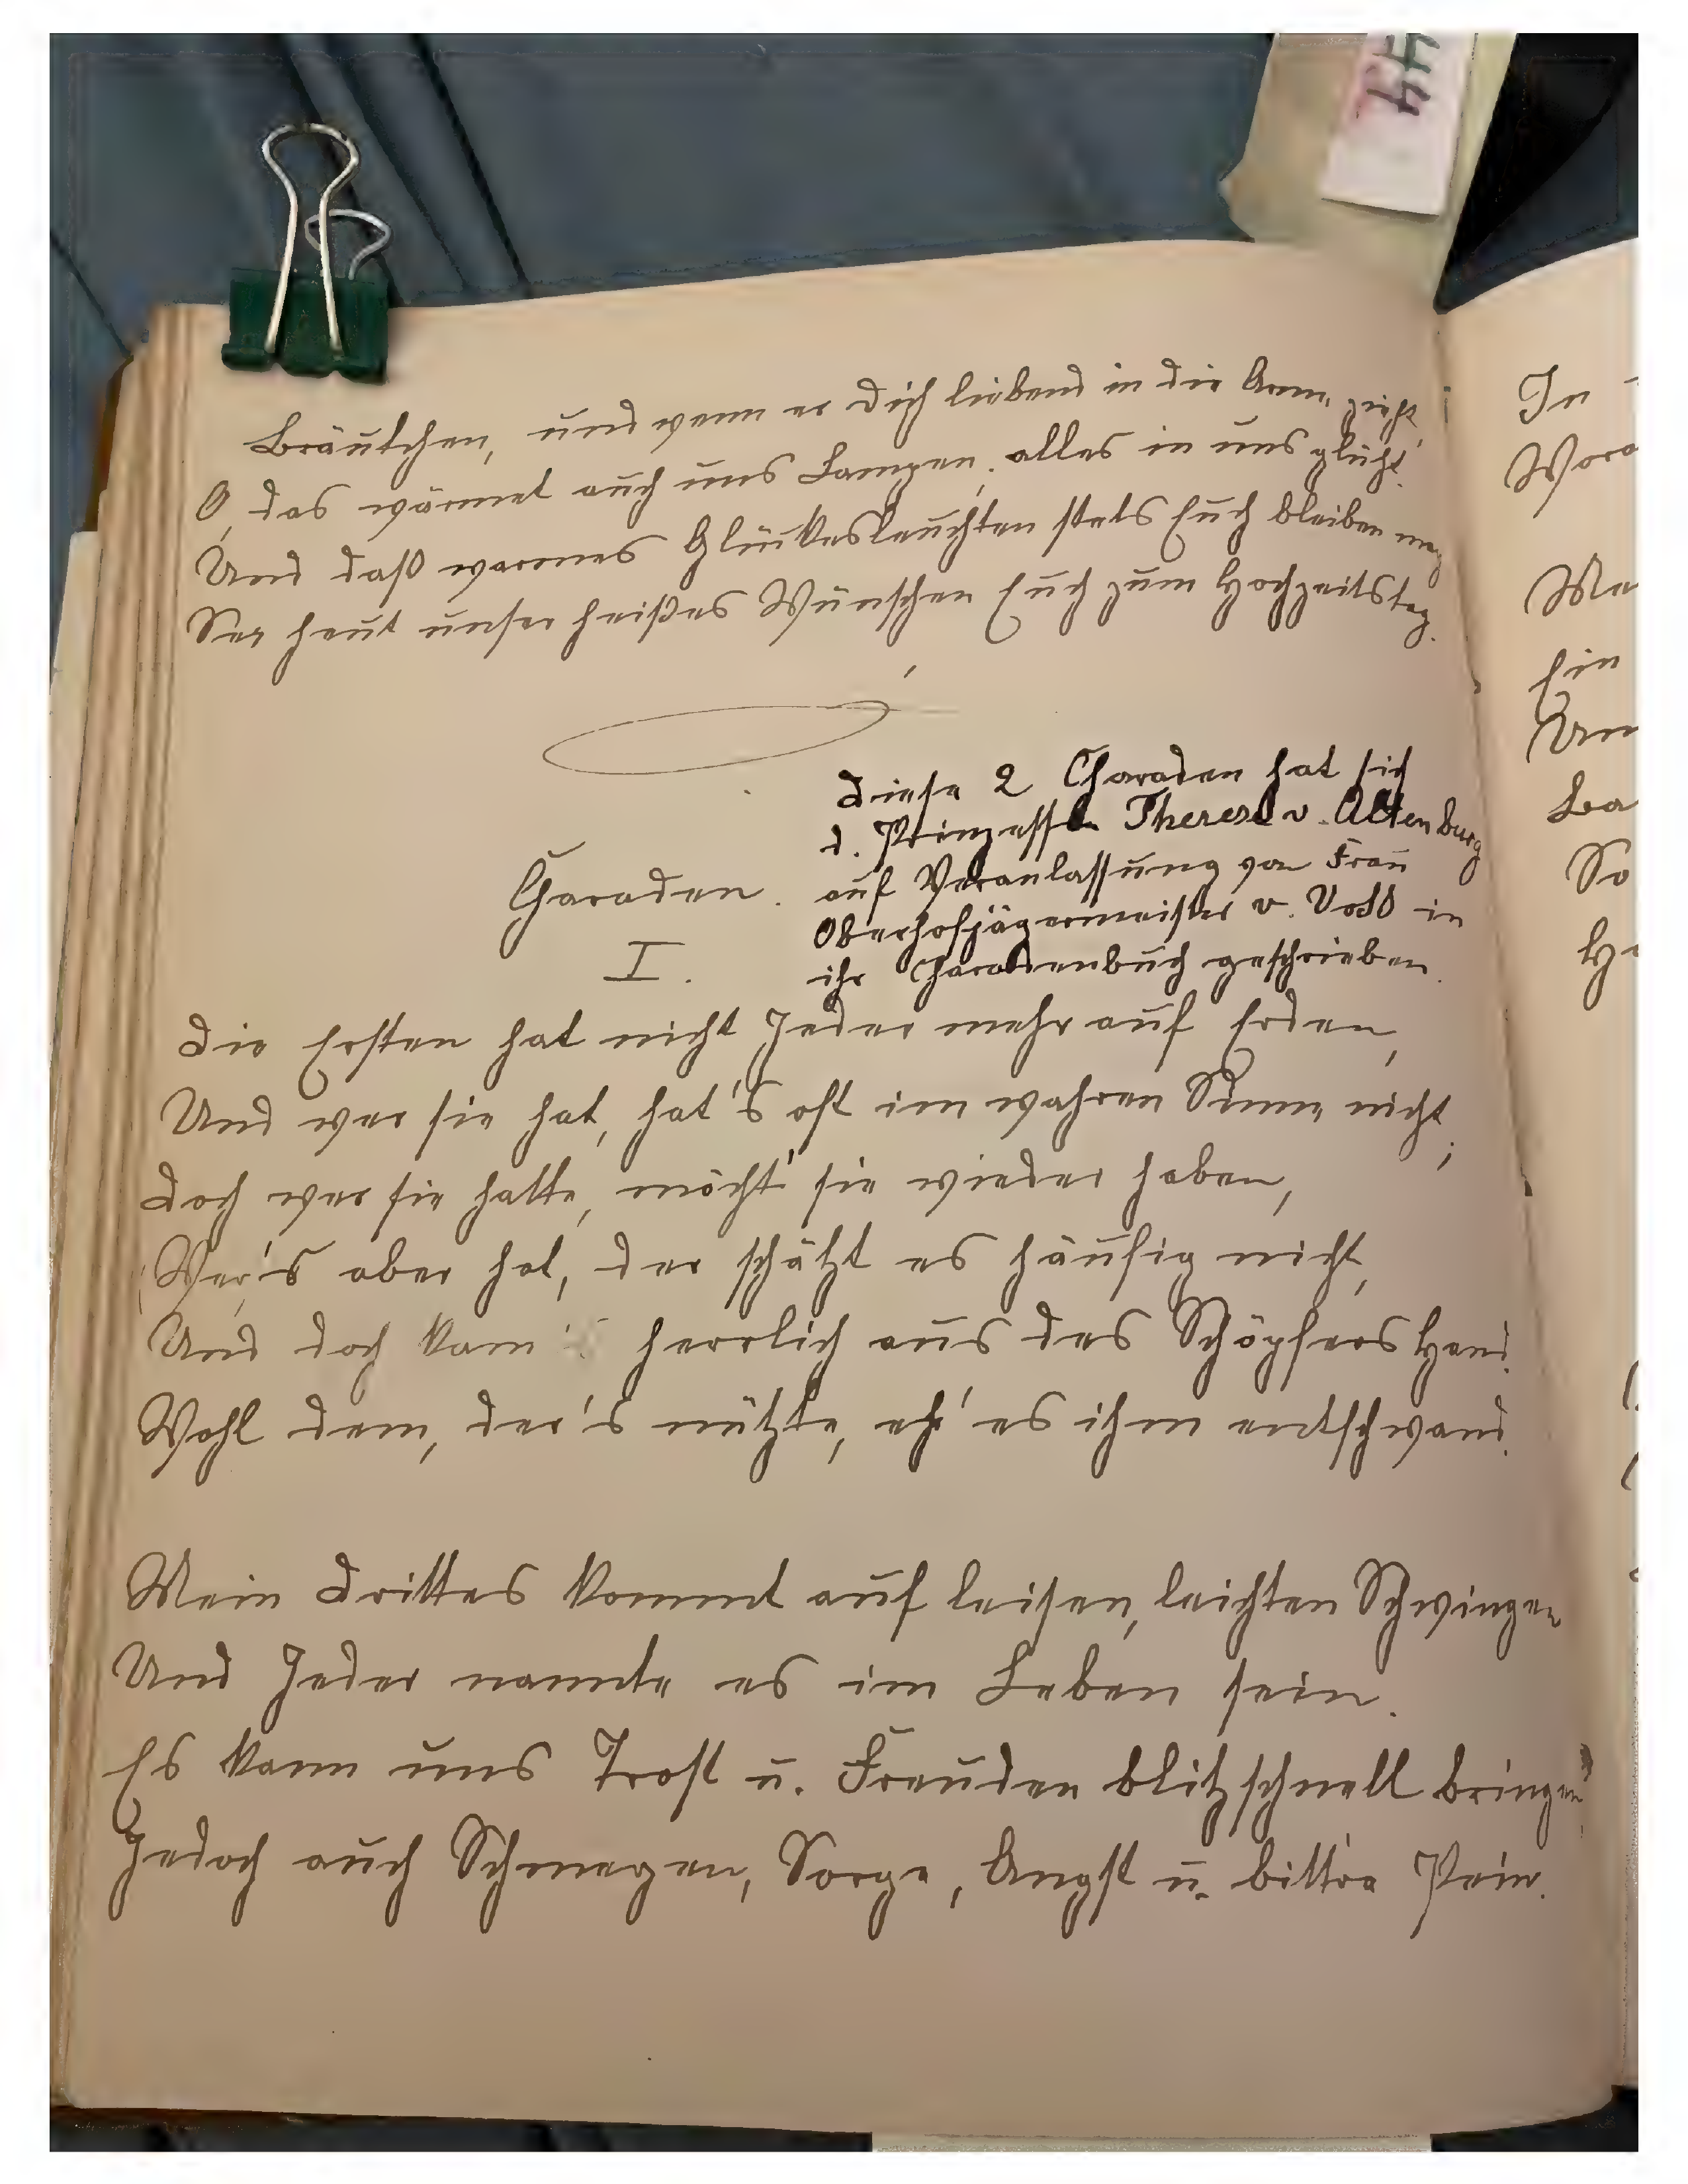 44
Bräutchen, und wenn er Dich liebend in die Arme zieht,
O, das wärmet auch uns Lampen, alles in uns glüht.
Und daß warmes Glückesleuchten stets Euch bleiben mag
Sey heut unser heißes Wünschen Euch zum Hochzeitstag.
Diese 2 Charaden hat sich
d. Prinzessin Therese v. Altenburg
auf Veranlassung von Frau
Oberhofjägermeister v. Voß in
ihr Charadenbuch geschrieben.
Charaden.
I.
Die Ersten hat nicht Jeder mehr auf Erden,
Und wer sie hat, hat's oft im wahren Sinne nicht;
Doch wer sie hatte, möcht' sie wieder haben,
Wer's aber hat, der schätzt es häufig nicht,
Und doch kam herrlich aus des Schöpfers Hand.
Wohl dem, der's nützte, eh' es ihm entschwand.
Mein Drittes kommt auf leisen, leichten Schwingen
Und Jeder nannte es im Leben sein.
Es kann uns Trost u. Freuden blitzschnell bringen
Jedoch auch Schmerzen, Sorge, Angst u. bittre Pein.
In
Ein
So